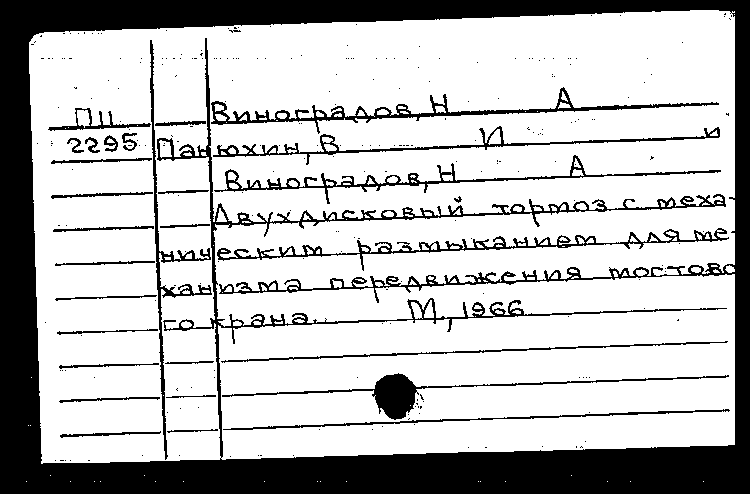 ПII Виноградов, Н А
2295 Панюхин, В И и
Виноградов, Н А
Двухдисковый тормоз с меха-
ническим размыканием для ме-
ханизма передвижения мостово
го крана. М., 1966